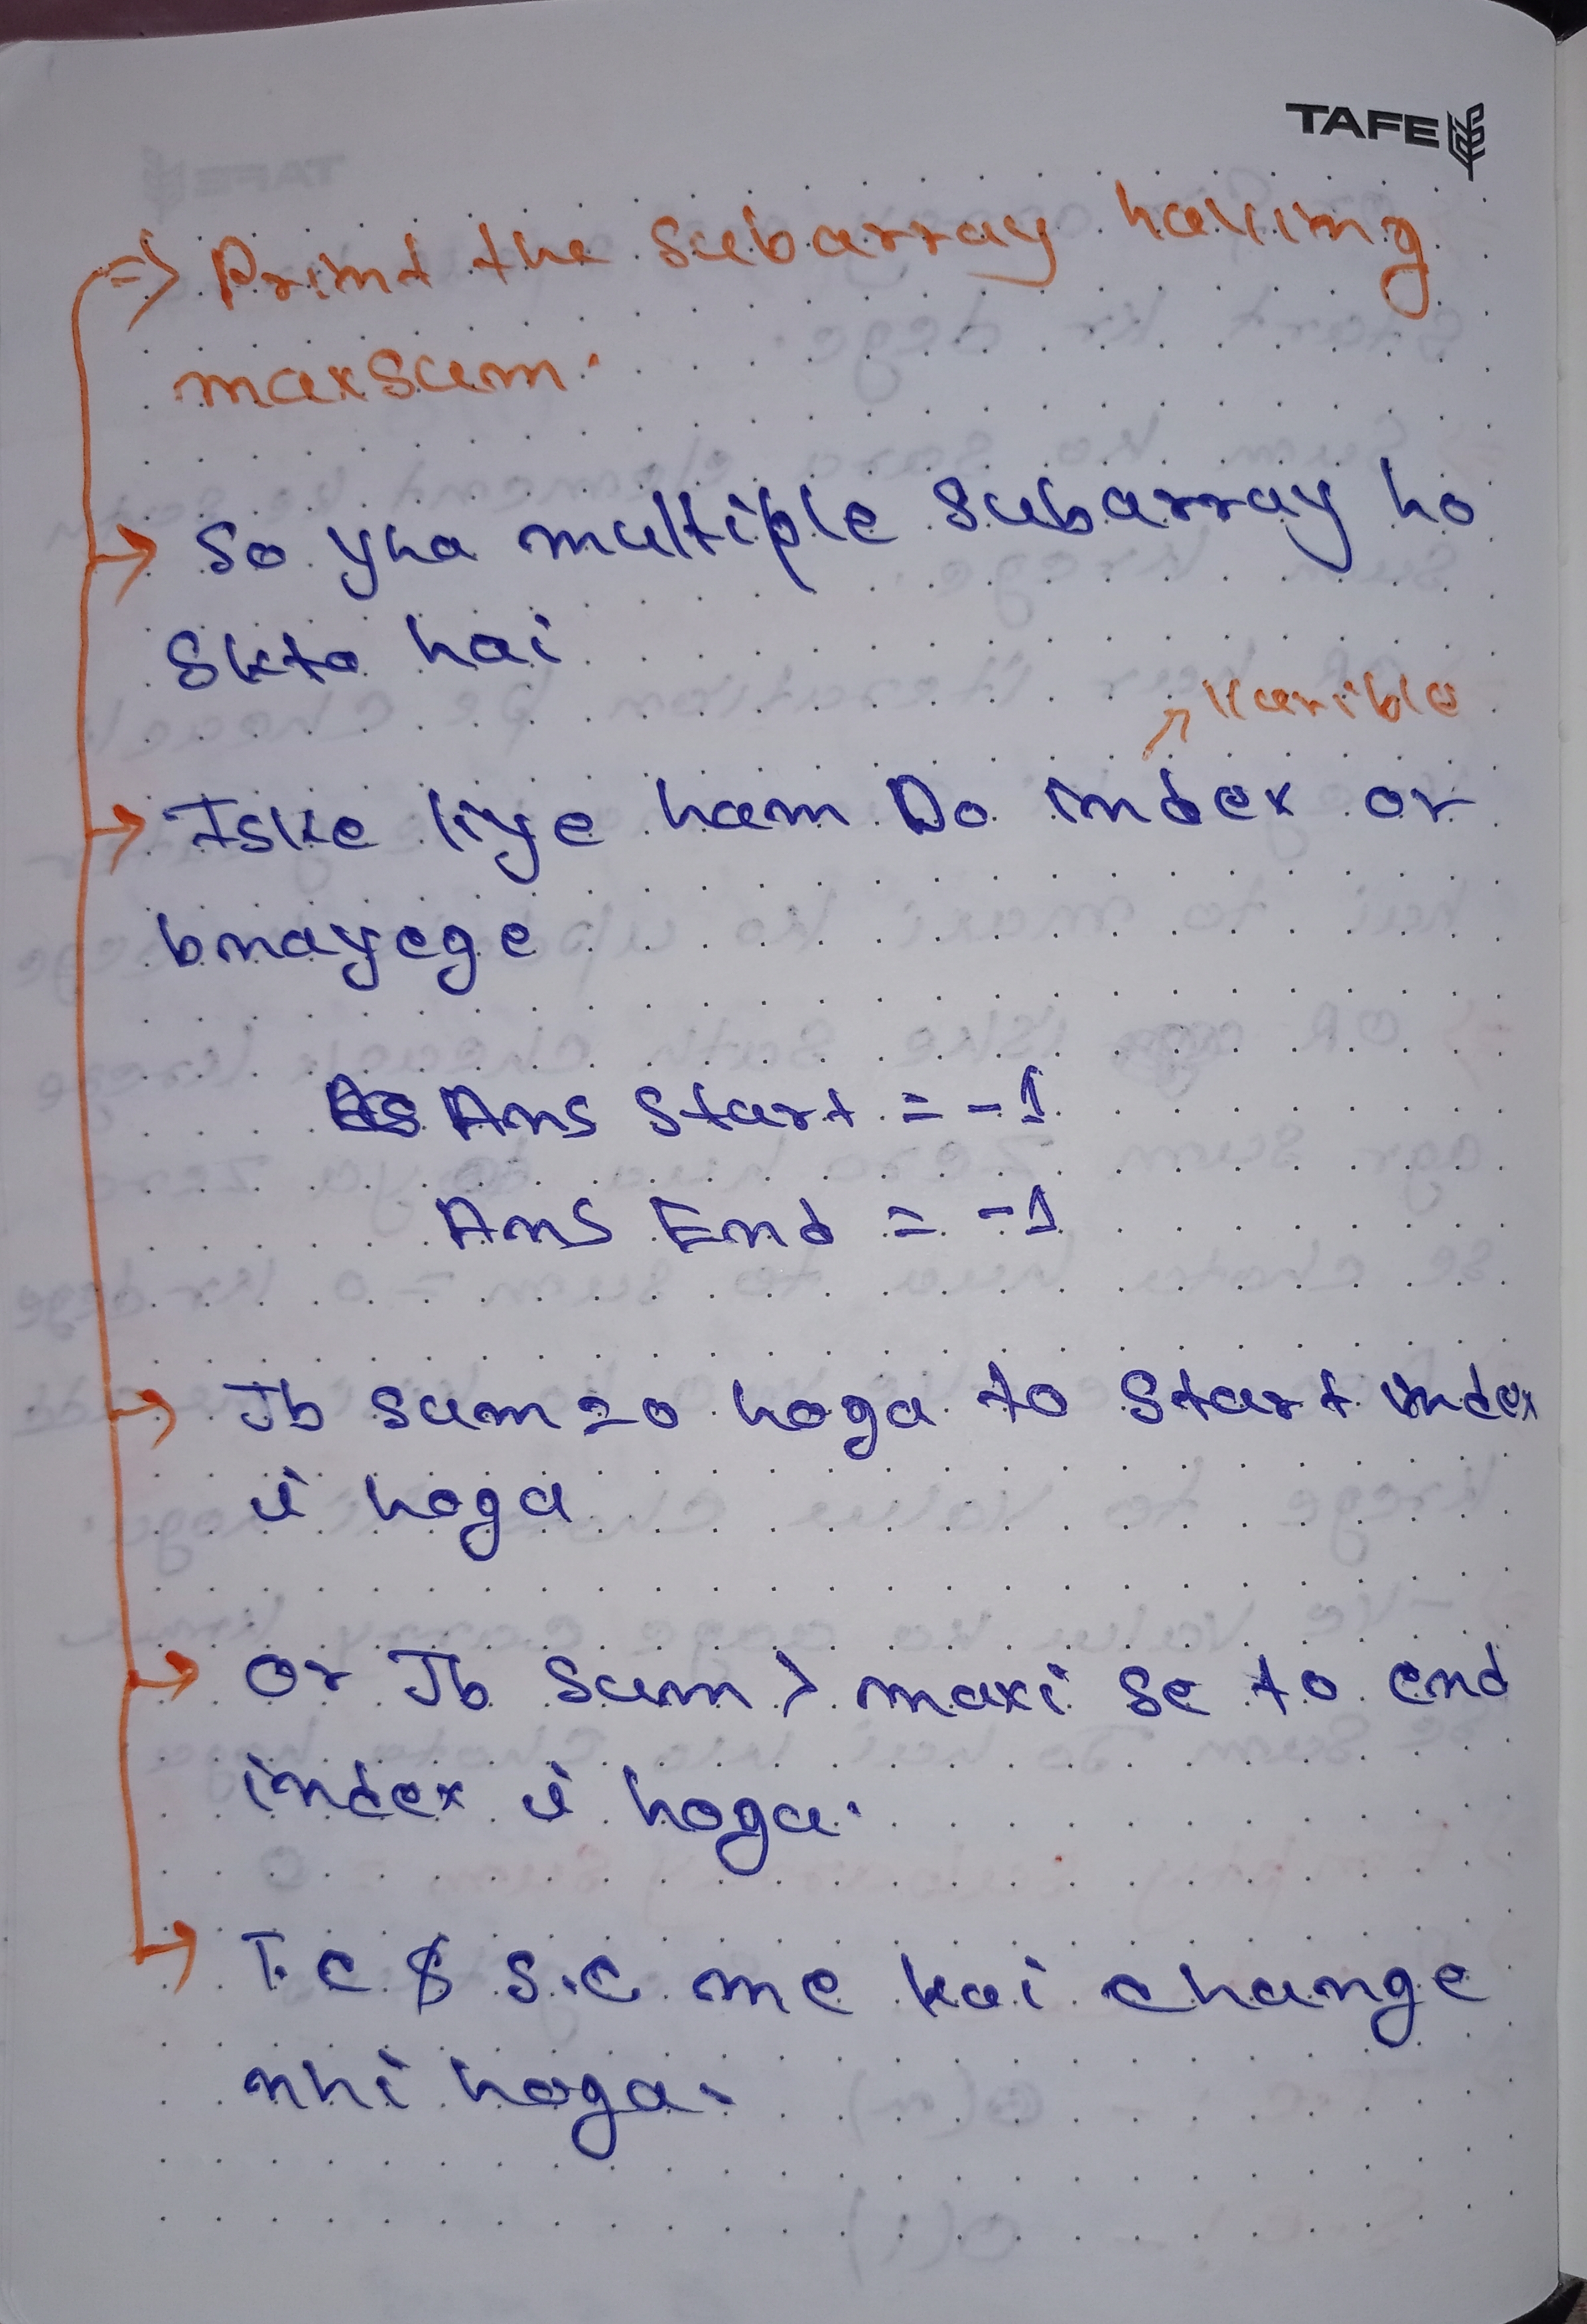 TAFE
=> Print the subarray having
maxsum.
→ So yha multiple subarray ho
skta hai
↗ varible
→ Iske liye ham Do index or
bnayege
Ans Start = -1
Ans End = -1
→ Jb sum=0 hoga to start index
i hoga
→ or Jb sum > maxi se to end
index i hoga.
→ T.C & S.C me koi change
nhi hoga.